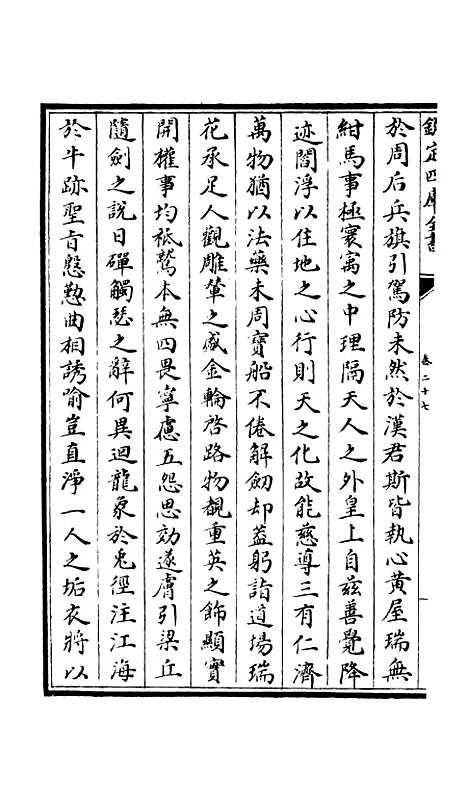 欽定四庫全書
卷二十七
於周后兵旗引駕防未然於漢君斯皆執心黃屋瑞無
紺馬事極寰㝢之中理隔天人之外皇上自兹善覺降
迹閻浮以住地之心行則天之化故能慈導三有仁濟
萬物猶以法藥未周寶船不倦解劒却葢躬詣道場瑞
花承足人觀雕輦之盛金輪啓路物覩重英之飾顯實
開權事均祗鷲本無四畏寧慮五怨思効遂膚引梁丘
隨劍之說日磾觸瑟之辭何異迴龍象於兎徑注江海
於牛跡聖旨慇懃曲相誘喻豈直淨一人之垢衣將以